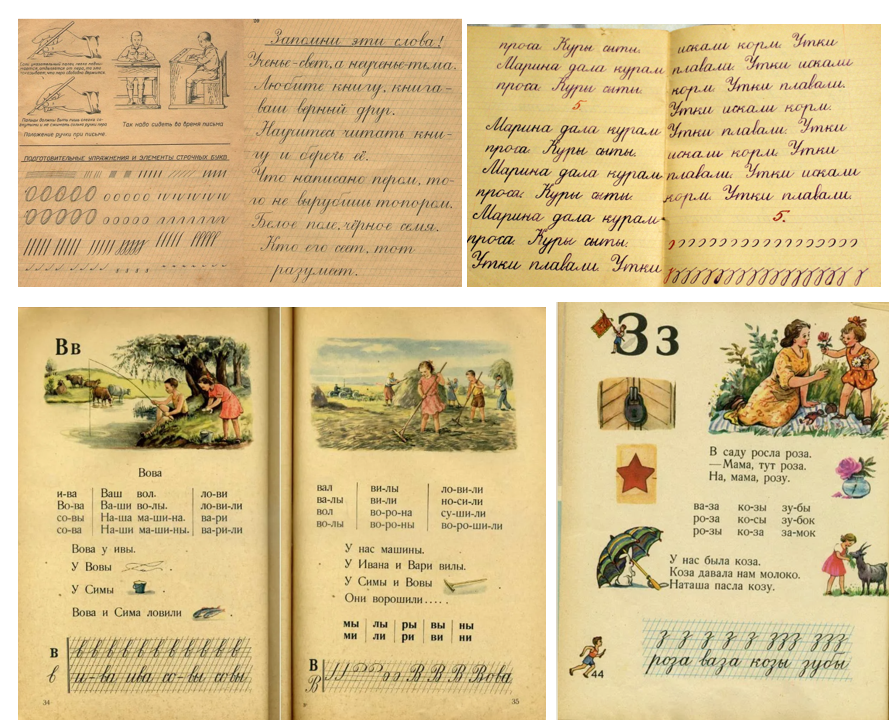 Положение ручки при письме.
Так надо сидеть во время письма
ПОДГОТОВИТЕЛЬНЫЕ УПРАЖНЕНИЯ И ЭЛЕМЕНТЫ СТРОЧНЫХ БУКВ
Запомни эти слова!
Ученье-свет, а неученье-тьма.
Любите книгу, книга-
ваш верный друг.
Научитесь читать кни-
гу и беречь её.
Что написано пером, то-
го не вырубишь топором.
Белое поле, чёрное семя.
Кто его сеет, тот
разумеет.
проса. Куры сыты.
Марина дала курам
проса. Куры сыты.
5
Марина дала курам
проса. Куры сыты.
Марина дала курам
проса. Куры сыты.
Марина дала курам
проса. Куры сыты.
Утки плавали. Утки
искали корм. Утки
плавали. Утки искали
корм. Утки плавали.
Утки искали корм.
Утки плавали. Утки
искали корм. Утки
плавали. Утки искали
корм. Утки плавали.
5.
Вв
Вова
и-ва Ваш вол. ло-ви
Во-ва Ва-ши во-лы. ло-ви-ли
со-вы На-ша ма-ши-на. ва-ри
со-ва На-ши ма-ши-ны. ва-ри-ли
Вова у ивы.
У Вовы .
У Симы .
Вова и Сима ловили .
в в в в в в в в в в в
в и-ва ива со-вы совы
34
вал ви-лы ло-ви-ли
ва-лы ви-ли но-си-ли
вол во-ро-на су-ши-ли
во-лы во-ро-ны во-ро-ши-ли
У нас машины.
У Ивана и Вари вилы.
У Симы и Вовы .
Они ворошили.....
мы лы ры вы ны
ми ли ри ви ни
В
В В В В Вова
35
Зз
В саду росла роза.
—Мама, тут роза.
На, мама, розу.
ва-за ко-зы зу-бы
ро-за ко-сы зу-бок
ро-зы ко-за за-мок
У нас была коза.
Коза давала нам молоко.
Наташа пасла козу.
з з з з з ззз ззз
роза ваза козы зубы
44